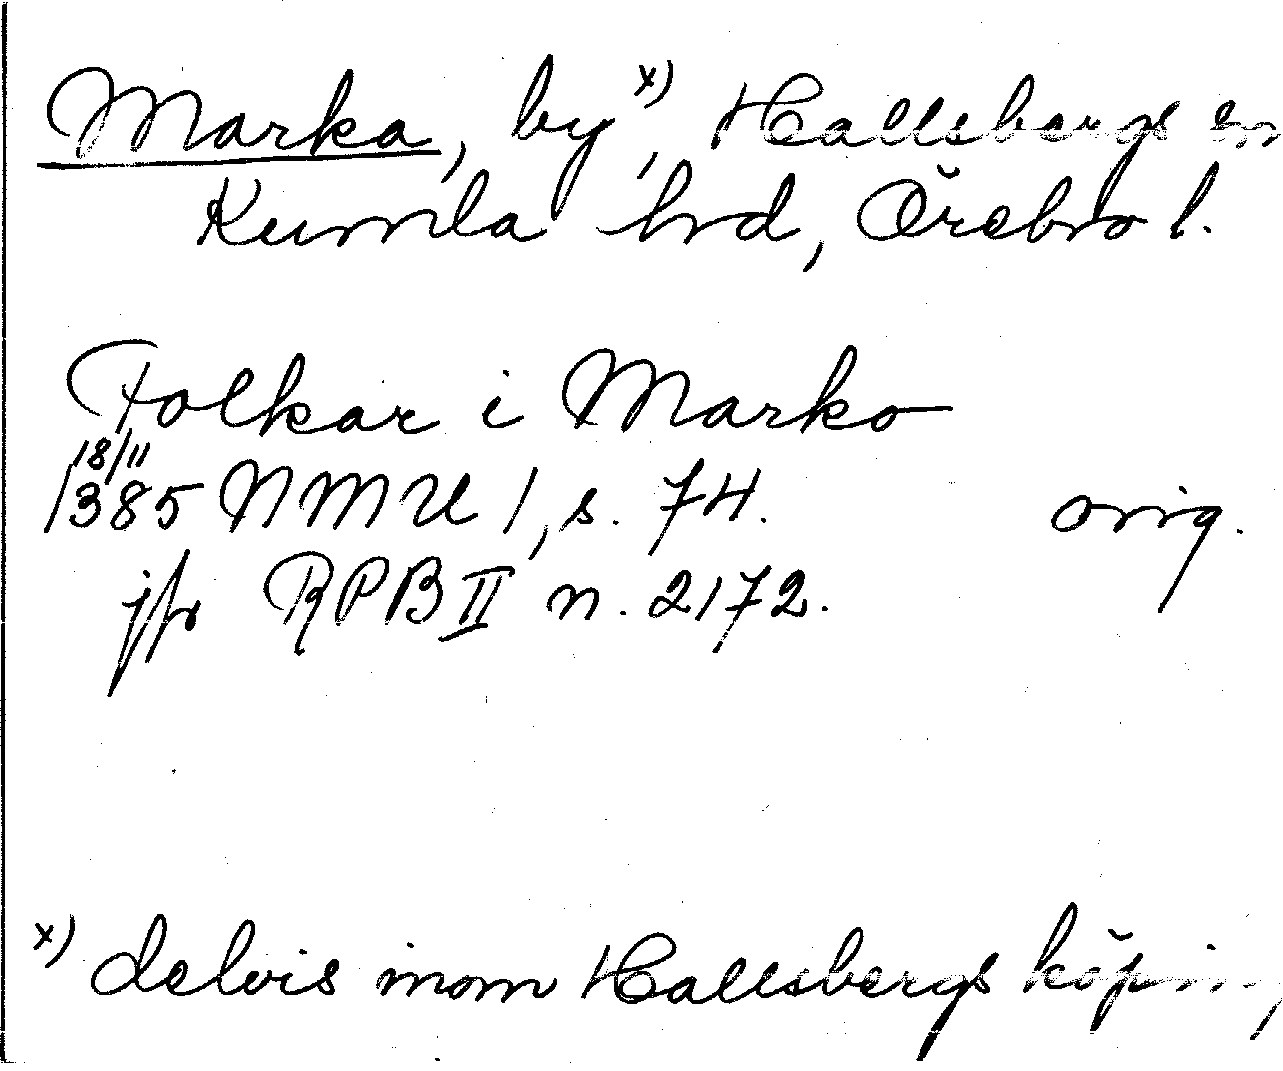 Marka, by x), Hallsbergs sn
Kumla hrd, Örebro l.
Folkar i Marko
18/11
1385 NMU 1, s. 74. orig.
jfr RPB II n. 2172.
x) delvis inom Hallsbergs köping